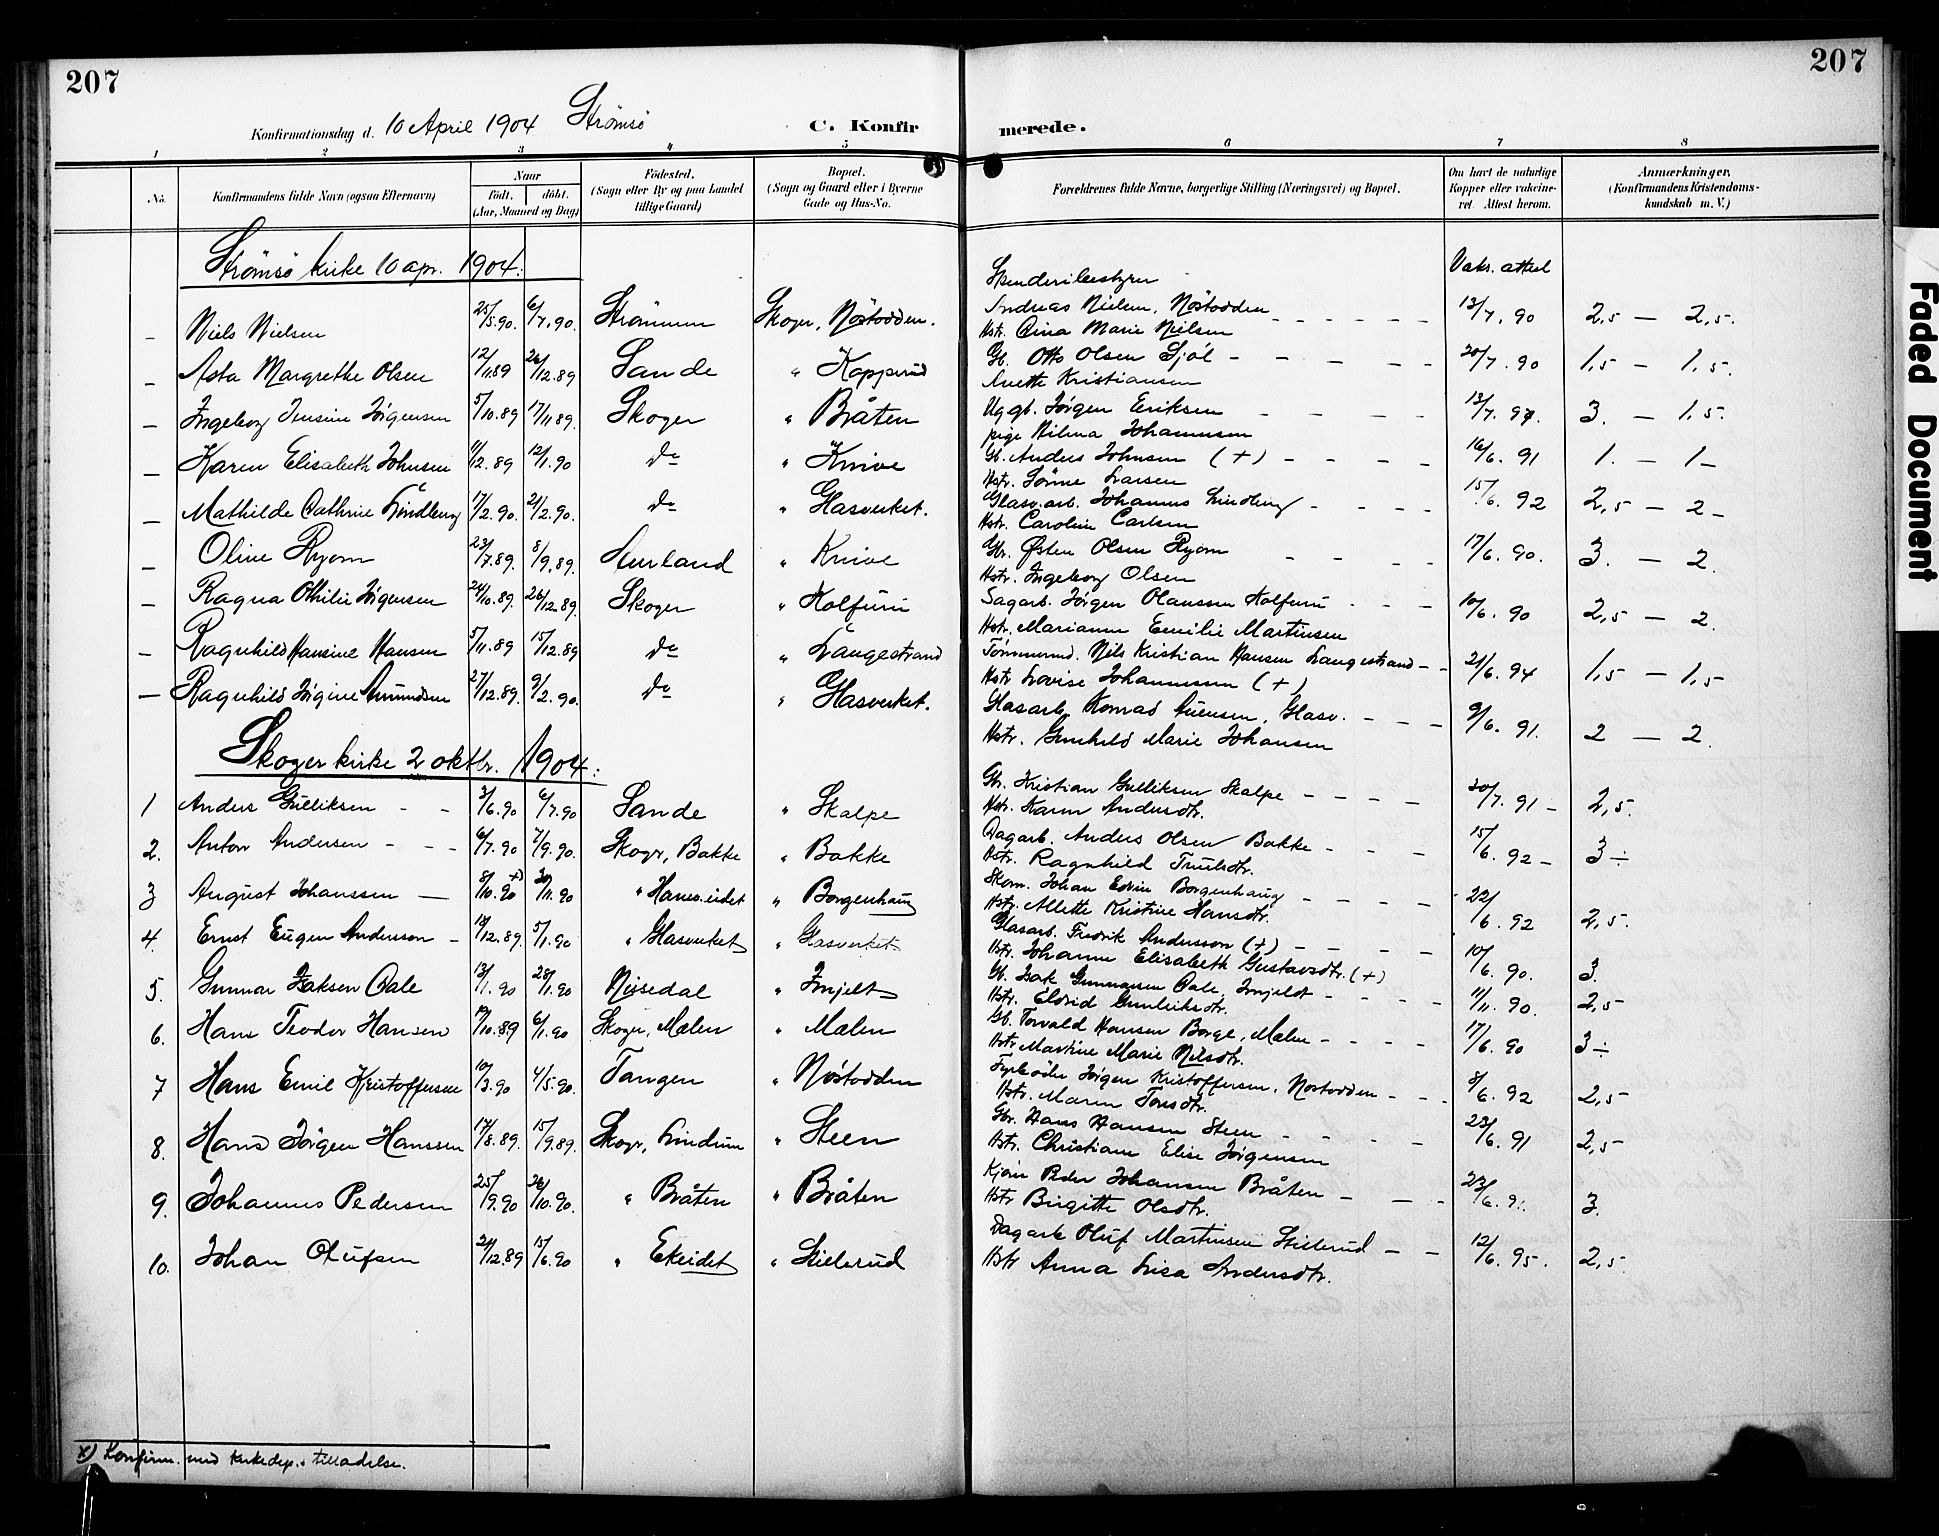 207
207
Konfirmationsdag d. 10 April 1904 Strømsö
C. Konfir
merede.
1 2 3 4 5 6 7 8
No.
Konfirmandens fulde Navn (ogsaa Efternavn)
Naar
født. døbt.
(Aar, Maaned og Dag)
Fødested.
(Sogn eller By og paa Landet
tillige Gaard)
Bopæl.
(Sogn og Gaard eller i Byerne
Gade og Hus-No.
Forældrenes fulde Navne, borgerlige Stilling (Næringsvei) og Bopæl.
Om havt de naturlige
Kopper eller vakcine-
ret. Attest herom.
Anmærkninger.
(Konfirmandens Kristendoms-
kundskab m. V.)
Strömsö kirke 10 apr. 1904:
Vaks. attest
Niels Nielsen 25/5.90. 6/7.90. Strømmen Skoger, Nöstodden.
Andreas Nielsen, Nöstodden
Hstr. Marie Nielsen
13/7. 90 2,5 — 2,5.
Asta Margrethe Olsen 12/11.89 26/12.89 Sande " Kopperud
Gb. Otto Olsen
Anette Kristiansen
20/7. 90 1,5 — 1,5.
Ingeborg Jensine Jörgensen 5/10.89 17/11.89. Skoger " Bråten
Uggb. Jörgen Eriksen
pige Hilma Johannesen
13/7. 97. 3. — 1,5.
Karen Elisabeth Johnsen 11/12.89 12/1.90 do " Knive
Gb. Anders Johnsen (+)
Hstr. Sörine Larsen
16/6. 91 1. — 1 —
Mathilde Cathrine Lindberg 17/2.90. 21/2.90. do " Glasverket.
Glasv.arb. Johannes Lindberg
Hstr. Caroline Carlsen
15/6. 92 2,5 — 2 —
Oline Ryom 23/7.89. 8/9.89. Aurland " Knive
Gbr. Østen Olsen Ryom
Hstr. Ingeborg Olsen
17/6. 90. 3. — 2.
Ragna Othilie Jörgensen 24/10.89. 26/12.89. Skoger " Kolfurü
Sagarb. Jörgen Olaussen Kolfurü
Hstr. Mariann Emilie Martinsen
10/6. 90 2,5 — 2.
Ragnhild Hansine Hansen 5/11.89 15/12.89 do " Langestrand
Tömmermd. Nils Kristian Hansen Langestrand
Hstr Lovise Johannessen (+)
21/6. 94 1,5 — 1,5
Ragnhild Jörgine Amundsen 27/12.89. 9/2.90. do " Glasverket.
Glasarb. Konrad Glasv.
Hstr. Gunhild Marie Johansen
9/6. 91. 2 — 2.
Skoger kirke 2 oktbr. 1904:
1 Anders Gulliksen 3/6.90 6/7.90 Sande " Skalpe
Gbr. Kristian Gulliksen Skalpe
Hstr. Karen Andersdtr.
30/7. 91 — 2,5.
2. Anton Andersen 6/7.90 7/9.90. Skogr, Bakke " Bakke
Dagarb. Anders Olsen Bakke
Hstr. Ragnhild Truulsdtr.
15/6. 92 — 3 ÷
3 August Johanssen 8/10.90 x) 30/11.90 " Hanseeidet " Borgenhaug
Skom. Johan Edvin Borgenhaug
Hstr. Allette Kristine Hansdtr.
22/6. 92 2,5.
4. Ernst Eugen Andersson 18/12.89. 5/1.90 " Glasverket " Glasverket
Glasarb. Fredrik Andersson (+)
Hstr. Johanne Elisabeth Gustavsdtr. (+)
10/6. 90. 3.
5. Gunnar Isaksen Dale 13/1.90 28/1.90 Nissedal " Imjelt
Gb. Isak Gunnarsen Dale, Imjeldt
Hstr. Eldrid Gunleiksdtr.
11/11. 90. 2,5
6. Hans Teodor Hansen 19/10.89 6/1.90 Skoger, Mælen " Mælen
Gb. Torvald Hansen Borge, Mælen
Hstr Martine Marie Nilsdtr.
17/6. 90 3 ÷
7 Hans Emil Kristoffersen 10/3.90 4/5.90. Tangen " Nöstodden
Fyrböder Jörgen Kristoffersen, Nöstodden
Hstr. Maren Tonsdtr.
8/6. 92 2,5
8. Hans Jörgen Hanssen 17/8.89. 15/9.89. Skogr, Lindum " Steen
Gbr. Hans Hansen Steen
Hstr. Christiane Elise Jörgensen
23/6. 91 2,5
9. Johannes Pedersen 25/9.90 26/10.90. " Bråten " Bråten
Peder Johansen Bråten
Hstr Birgitte Olsdtr.
23/6. 3.
10. Johan Olufsen 24/12.89 15/6.90 " Ekeidet " Stillerud
Dagarb Oluf Martinsen Stillerud
Hstr Anna Lisa Andersdtr.
12/6. 95. 2,5
x) Konfirm. med kirkedep.s tilladelse.
Faded Document